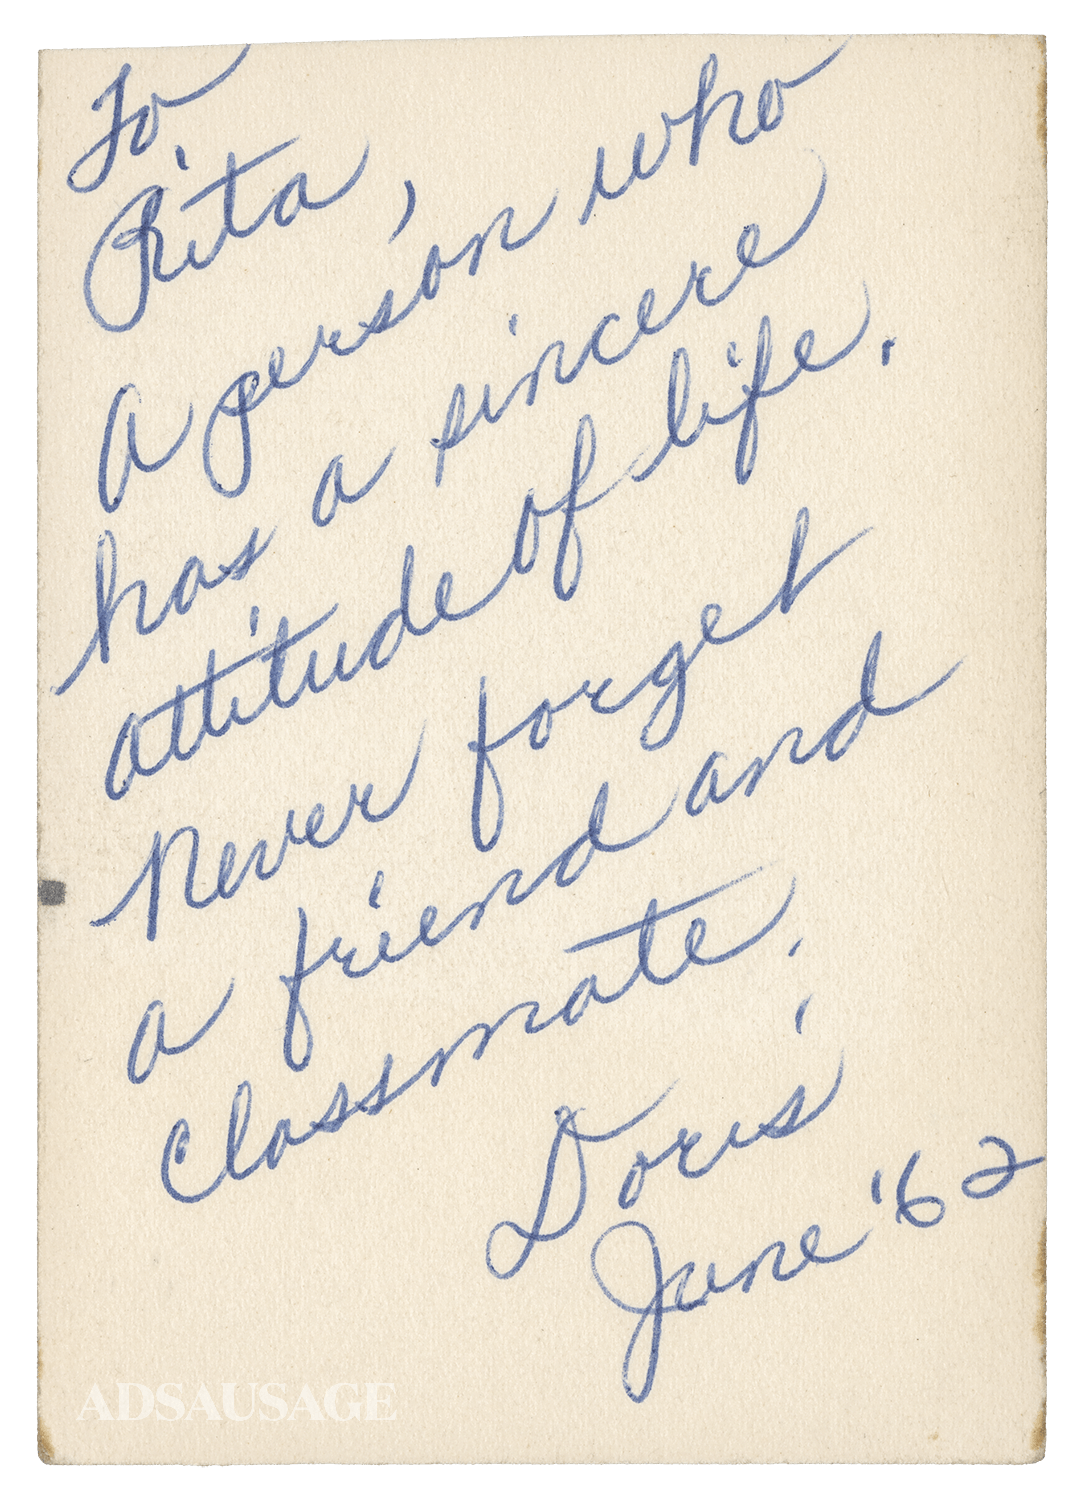 To
Rita,
A person who
has a sincere
attitude of life.
Never forget
a friend and
classmate.
Doris
June '62
ADSAUSAGE